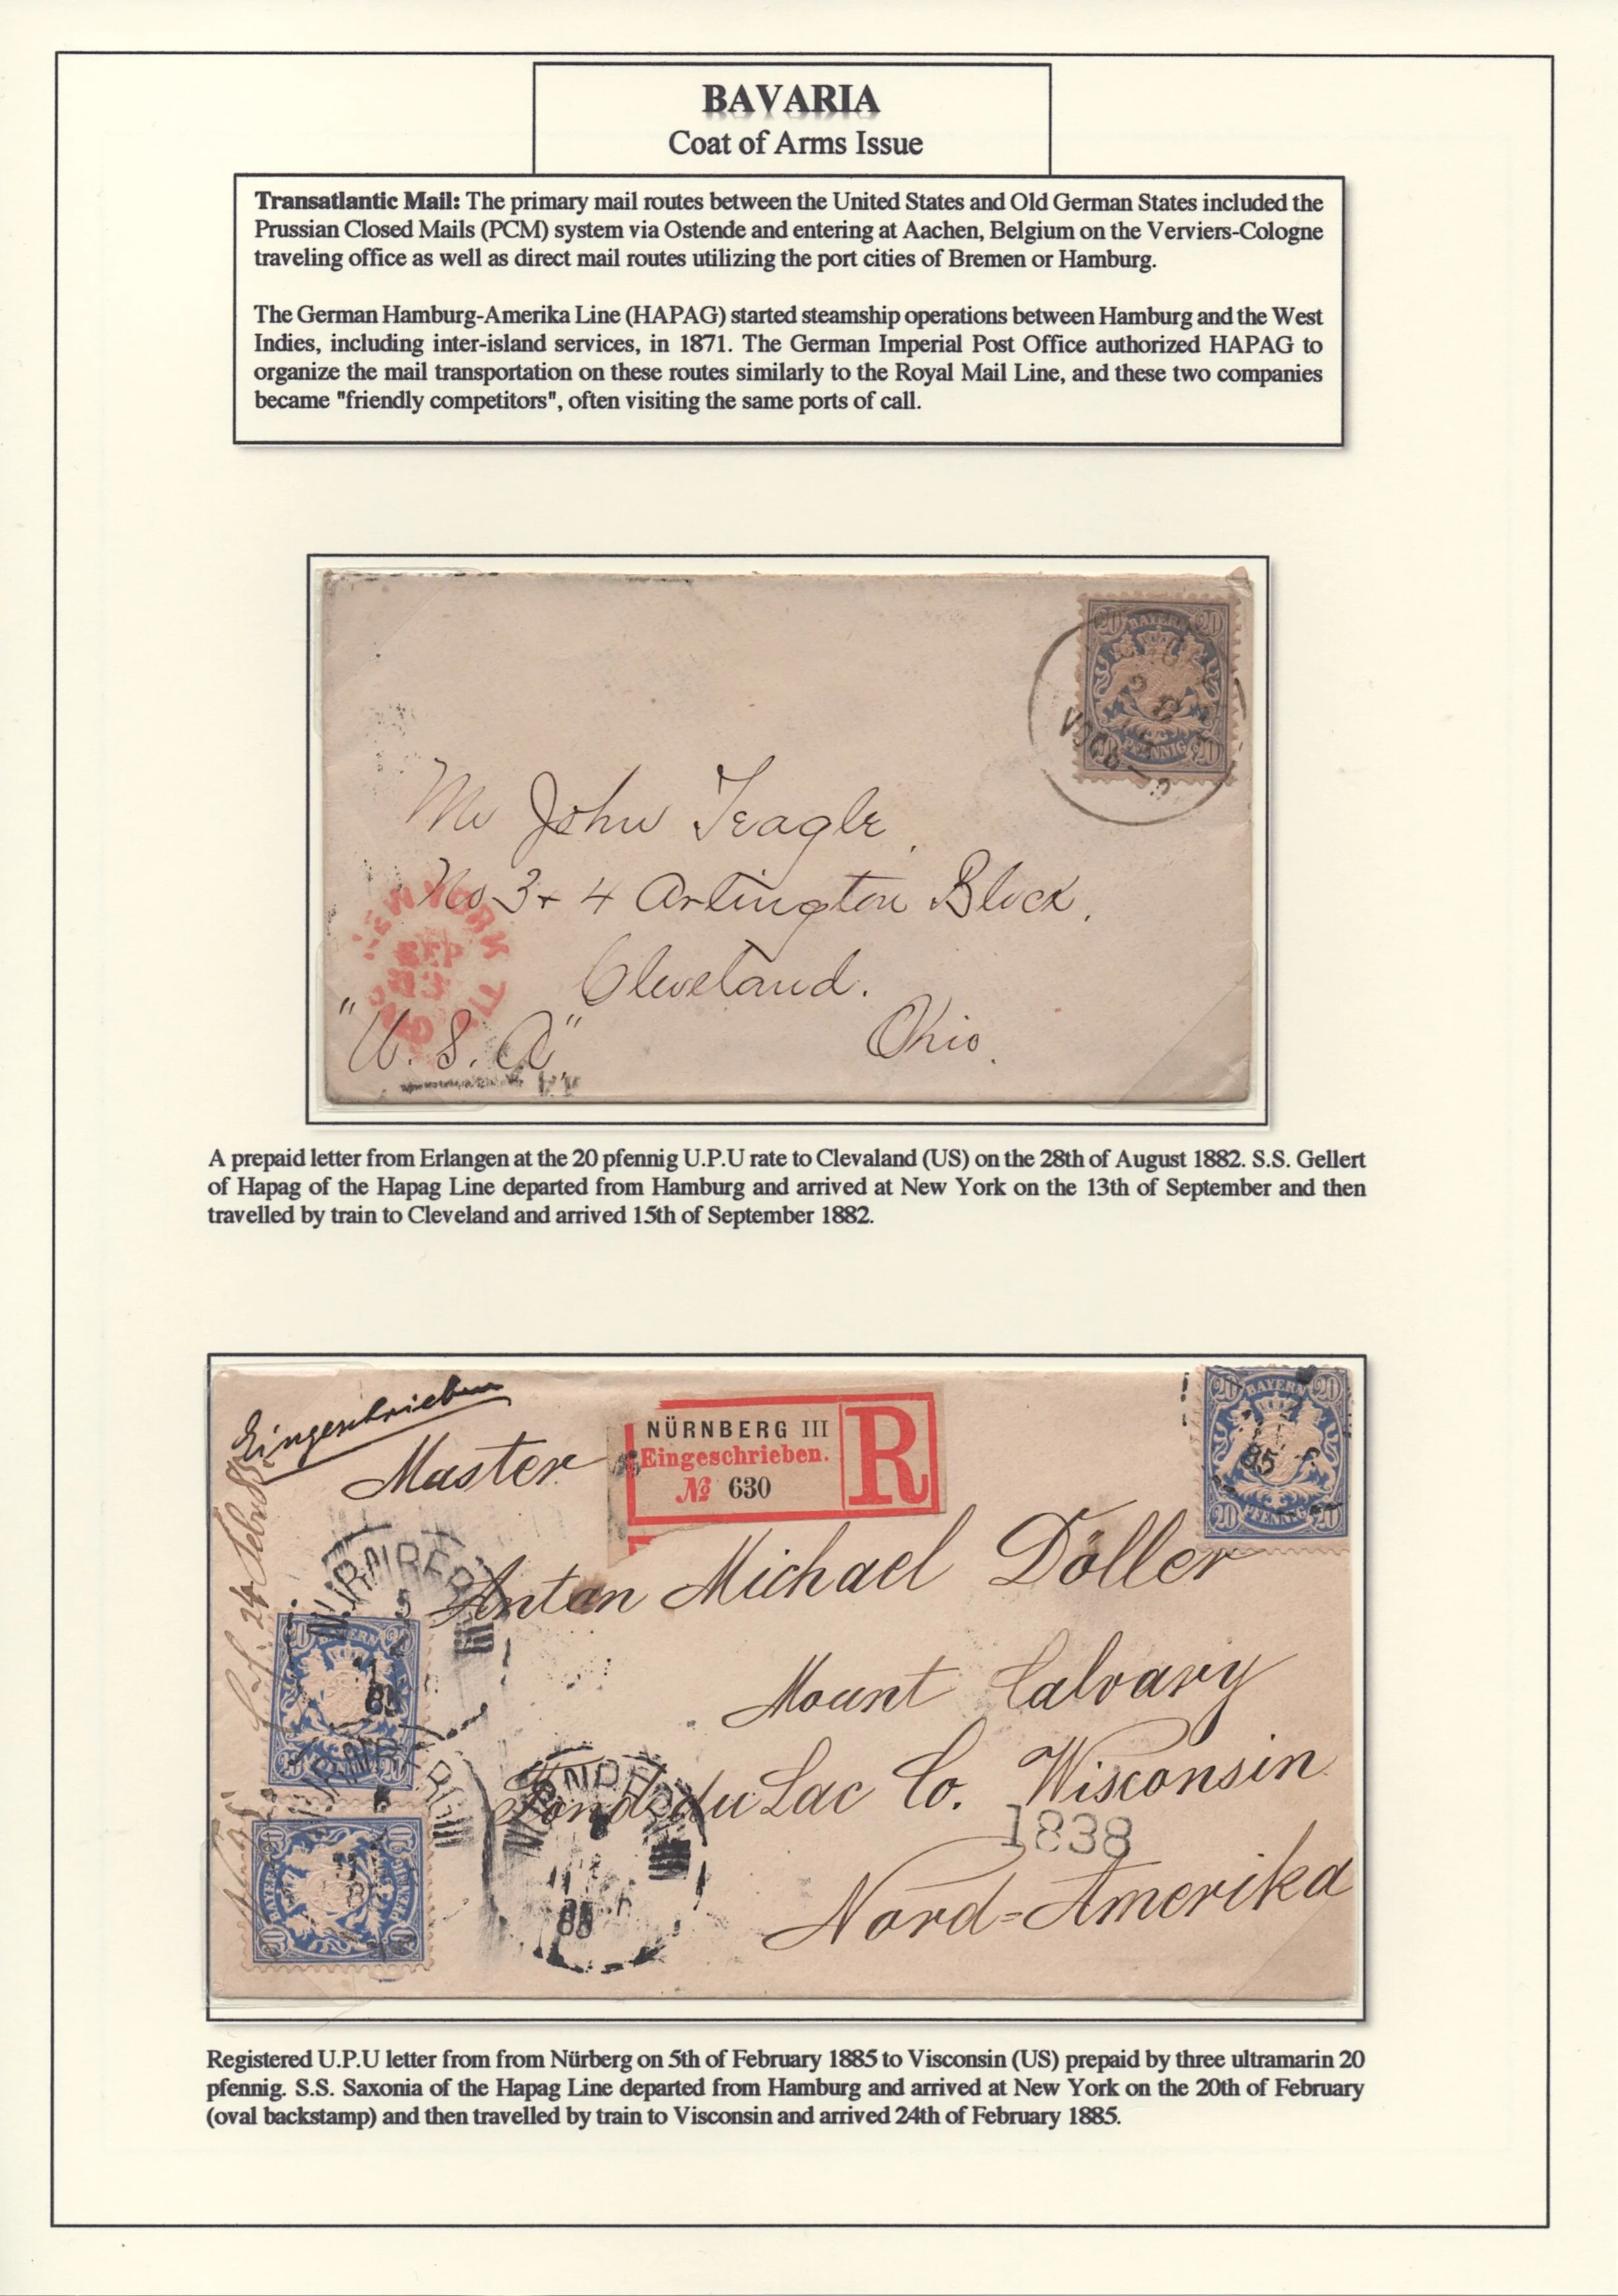 BAVARIA
Coat of Arms Issue
Transatlantic Mail: The primary mail routes between the United States and Old German States included the
Prussian Closed Mails (PCM) system via Ostende and entering at Aachen, Belgium on the Verviers-Cologne
traveling office as well as direct mail routes utilizing the port cities of Bremen or Hamburg.
The German Hamburg-Amerika Line (HAPAG) started steamship operations between Hamburg and the West
Indies, including inter-island services, in 1871. The German Imperial Post Office authorized HAPAG to
organize the mail transportation on these routes similarly to the Royal Mail Line, and these two companies
became "friendly competitors", often visiting the same ports of call.
20 BAYERN 20
20 PFENNIG 20
Mr John Teagle
No 3 + 4 Arlington Block.
Cleveland.
"U. S. A" Ohio.
NEW YORK
SEP
13
A prepaid letter from Erlangen at the 20 pfennig U.P.U rate to Clevaland (US) on the 28th of August 1882. S.S. Gellert
of Hapag of the Hapag Line departed from Hamburg and arrived at New York on the 13th of September and then
travelled by train to Cleveland and arrived 15th of September 1882.
Eingeschrieben
NÜRNBERG III
Eingeschrieben.
№ 630
R
20 BAYERN 20
85
20 PFENNIG 20
Master
Anton Michael Döller
Mount Calvary
Fond du Lac Co. Wisconsin
1838
Nord=Amerika
NÜRNBERG
20 BAYERN 20
85
NÜRNBERG
NÜRNBERG
85
Registered U.P.U letter from from Nürberg on 5th of February 1885 to Visconsin (US) prepaid by three ultramarin 20
pfennig. S.S. Saxonia of the Hapag Line departed from Hamburg and arrived at New York on the 20th of February
(oval backstamp) and then travelled by train to Visconsin and arrived 24th of February 1885.